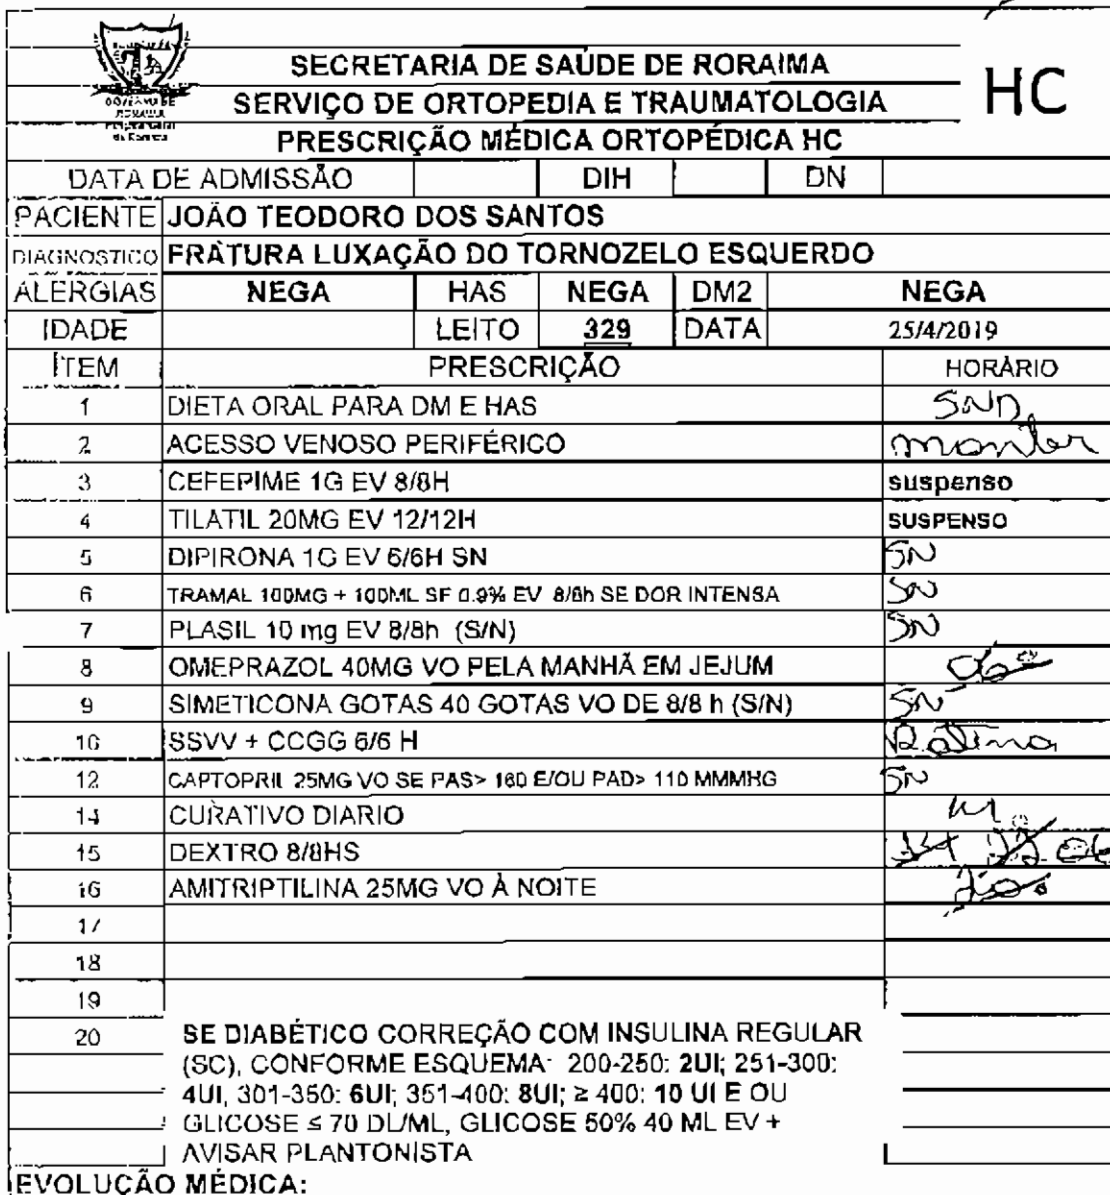 SECRETARIA DE SAÚDE DE RORAIMA
HC
SERVIÇO DE ORTOPEDIA E TRAUMATOLOGIA
PRESCRIÇÃO MÉDICA ORTOPÉDICA HC
DATA DE ADMISSÃO DIH DN
PACIENTE JOÃO TEODORO DOS SANTOS
DIAGNOSTICO FRATURA LUXAÇÃO DO TORNOZELO ESQUERDO
ALERGIAS NEGA HAS NEGA DM2 NEGA
IDADE LEITO 329 DATA 25/4/2019
ÍTEM PRESCRIÇÃO HORÁRIO
1 DIETA ORAL PARA DM E HAS SND
2 ACESSO VENOSO PERIFÉRICO manter
3 CEFEPIME 1G EV 8/8H suspenso
4 TILATIL 20MG EV 12/12H SUSPENSO
5 DIPIRONA 1G EV 6/6H SN SN
6 TRAMAL 100MG + 100ML SF 0.9% EV 8/8h SE DOR INTENSA SN
7 PLASIL 10 mg EV 8/8h (S/N) SN
8 OMEPRAZOL 40MG VO PELA MANHÃ EM JEJUM 06
9 SIMETICONA GOTAS 40 GOTAS VO DE 8/8 h (S/N) SN
10 SSVV + CCGG 6/6 H Rotina
12 CAPTOPRIL 25MG VO SE PAS> 160 E/OU PAD> 110 MMMHG SN
14 CURATIVO DIARIO M.
15 DEXTRO 8/8HS 14 22 06
16 AMITRIPTILINA 25MG VO À NOITE 20
17
18
19
20 SE DIABÉTICO CORREÇÃO COM INSULINA REGULAR
(SC), CONFORME ESQUEMA: 200-250: 2UI; 251-300:
4UI, 301-350: 6UI; 351-400: 8UI; ≥ 400: 10 UI E OU
GLICOSE ≤ 70 DL/ML, GLICOSE 50% 40 ML EV +
AVISAR PLANTONISTA
EVOLUÇÃO MÉDICA: